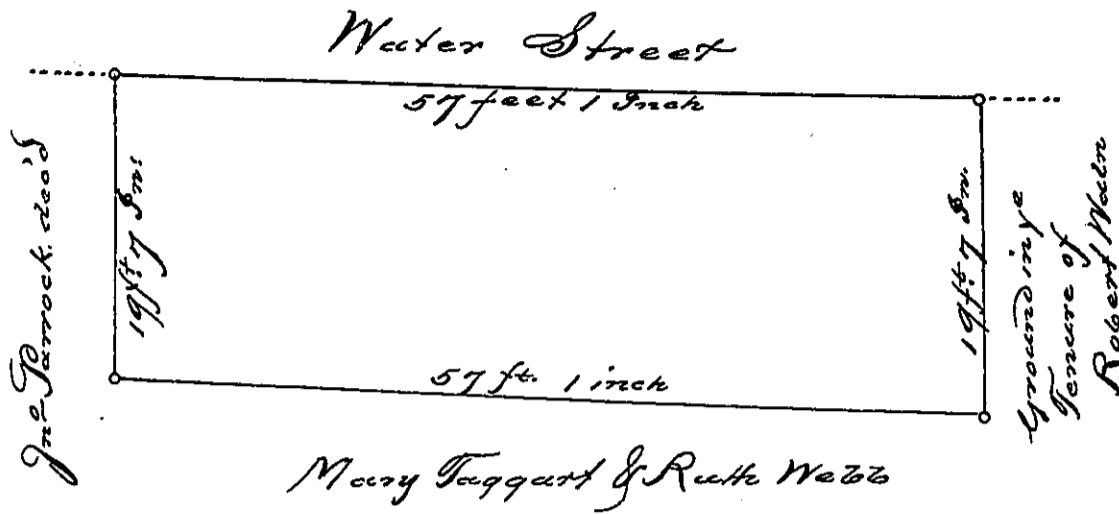 Water Street
57 feet 1 Inch
Jno Parrock, dec'd
19 ft. 7 In.
19 ft. 7 In.
Ground in ye
Tenure of
Robert Waln
57 ft. 1 inch
Mary Taggart & Ruth Webb